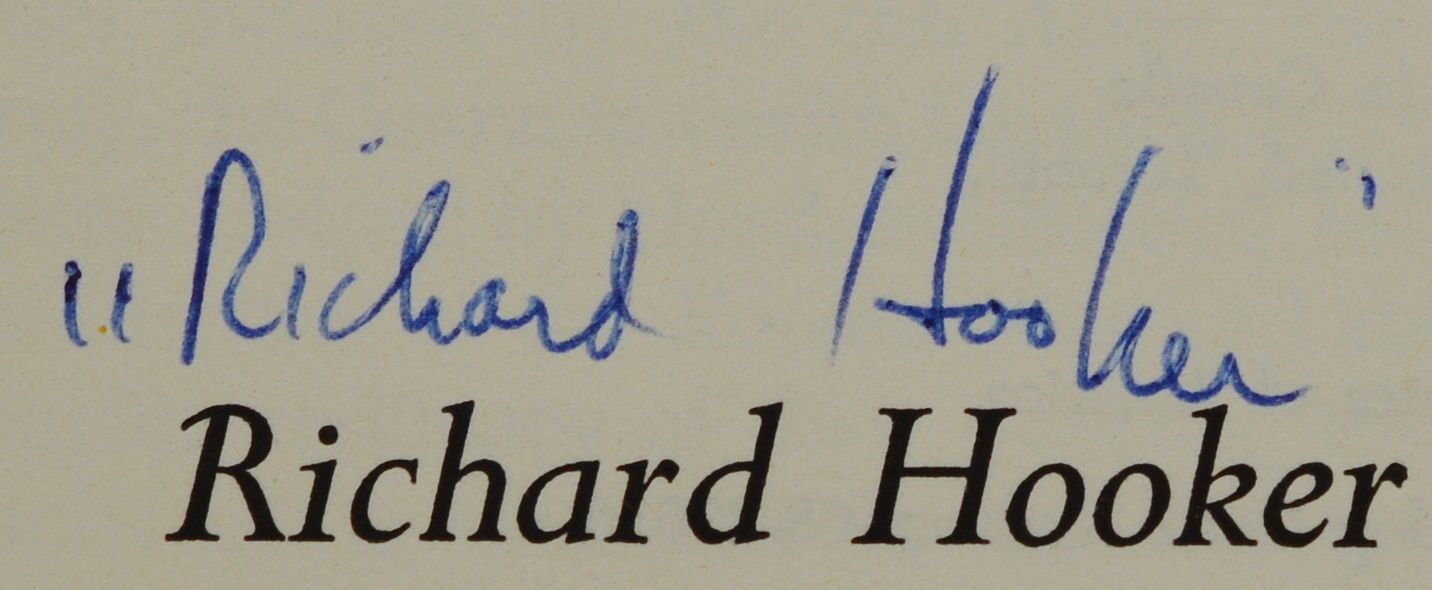 "Richard Hooker"
Richard Hooker